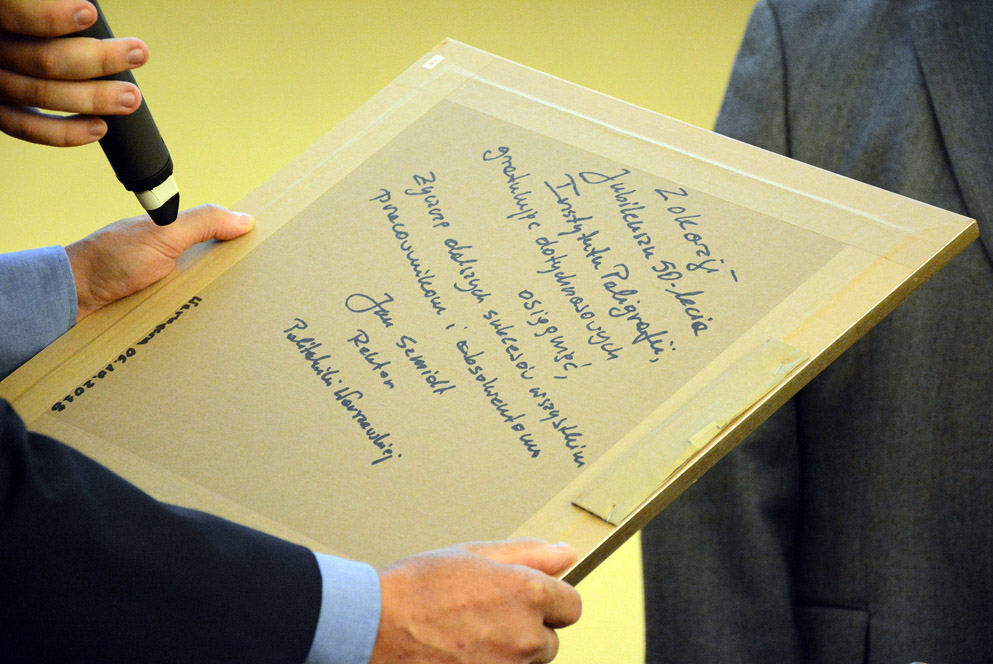 Z okazji
Jubileuszu 50-lecia
Instytutu Poligrafii,
gratuluję dotychczasowych
osiągnięć,
życzę dalszych sukcesów wszystkim
pracownikom i absolwentom
Jan Szmidt
Rektor
Politechniki Warszawskiej
Warszawa 06.10.2018